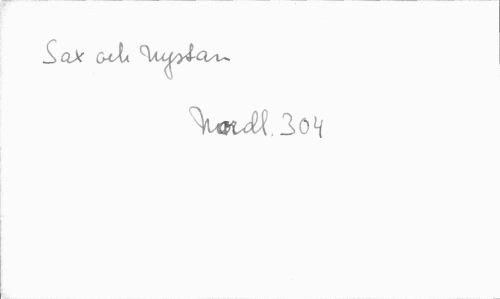 Sax och Nystan
Nordl. 304